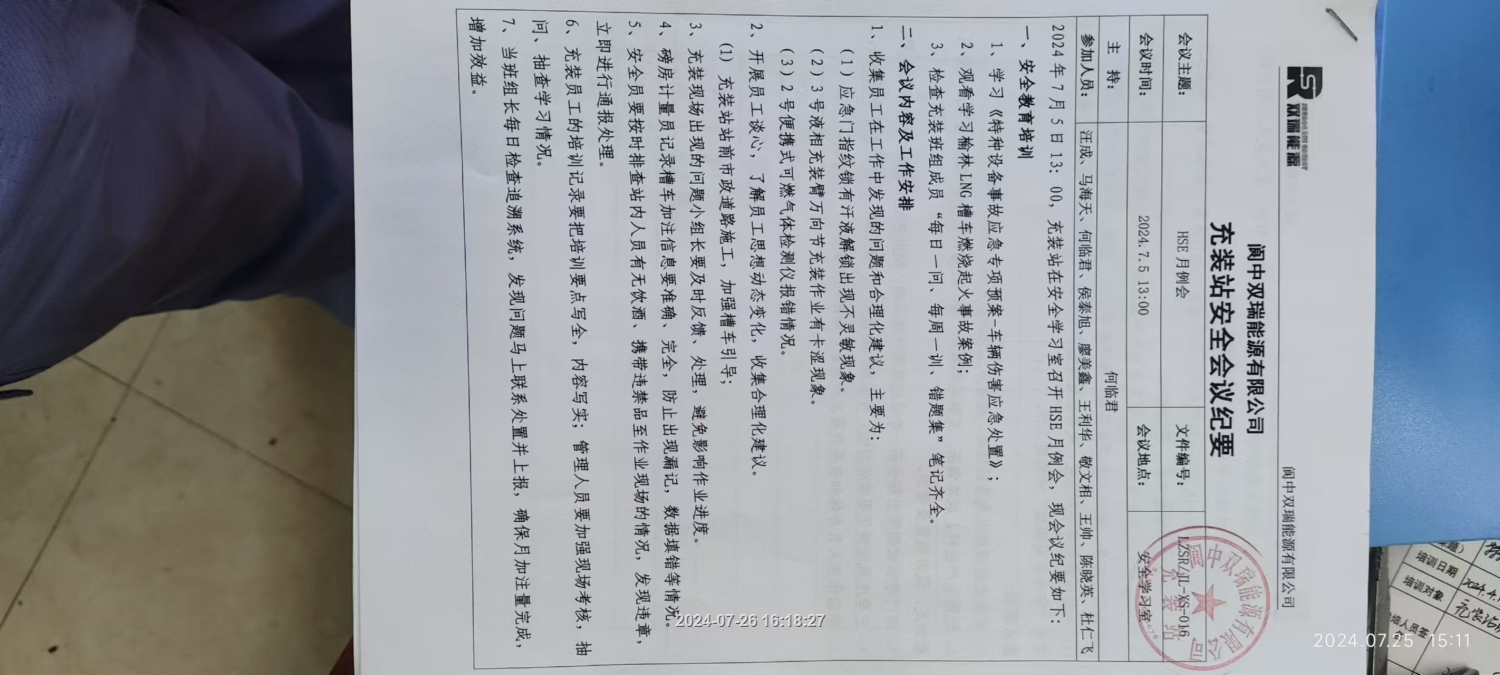 双瑞能源
阆中双瑞能源有限公司
阆中双瑞能源有限公司
充装站安全会议纪要
会议主题： HSE 月例会 文件编号： LZSR/JL-XS-016
会议时间： 2024.7.5 13:00 会议地点： 安全学习室
主 持： 何临君
参加人员： 汪成、马海天、何临君、侯泰旭、廖美鑫、王利华、敬文相、王帅、陈晓英、杜仁飞
2024 年 7 月 5 日 13：00，充装站在安全学习室召开 HSE 月例会，现会议纪要如下：
一、安全教育培训
1、学习《特种设备事故应急专项预案-车辆伤害应急处置》；
2、观看学习榆林 LNG 槽车燃烧起火事故案例；
3、检查充装班组成员“每日一问、每周一训、错题集”笔记齐全。
二、会议内容及工作安排
1、收集员工在工作中发现的问题和合理化建议，主要为：
（1）应急门指纹锁有汗液解锁出现不灵敏现象。
（2）3 号液相充装臂万向节充装作业有卡涩现象。
（3）2 号便携式可燃气体检测仪报错情况。
2、开展员工谈心，了解员工思想动态变化，收集合理化建议。
（1）充装站站前市政道路施工，加强槽车引导；
3、充装现场出现的问题小组长要及时反馈、处理，避免影响作业进度。
4、磅房计量员记录槽车加注信息要准确、完全，防止出现漏记，数据填错等情况。
5、安全员要按时排查站内人员有无饮酒、携带违禁品至作业现场的情况，发现违章，
立即进行通报处理。
6、充装员工的培训记录要把培训要点写全，内容写实；管理人员要加强现场考核，抽
问、抽查学习情况。
7、当班组长每日检查追溯系统，发现问题马上联系处置并上报，确保月加注量完成，
增加效益。
阆中双瑞能源有限公司
充装站
培训日期
培训对象
2024-07-26 16:18:27
2024.07.25 15:11